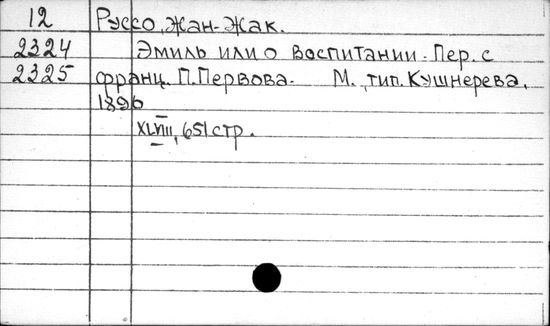 12 Руссо, Жан-Жак.
2324 Эмиль или о воспитании. Пер. с
2325 франц. П. Первова. М., тип. Кушнерева,
1896
XLVIII, 651 стр.